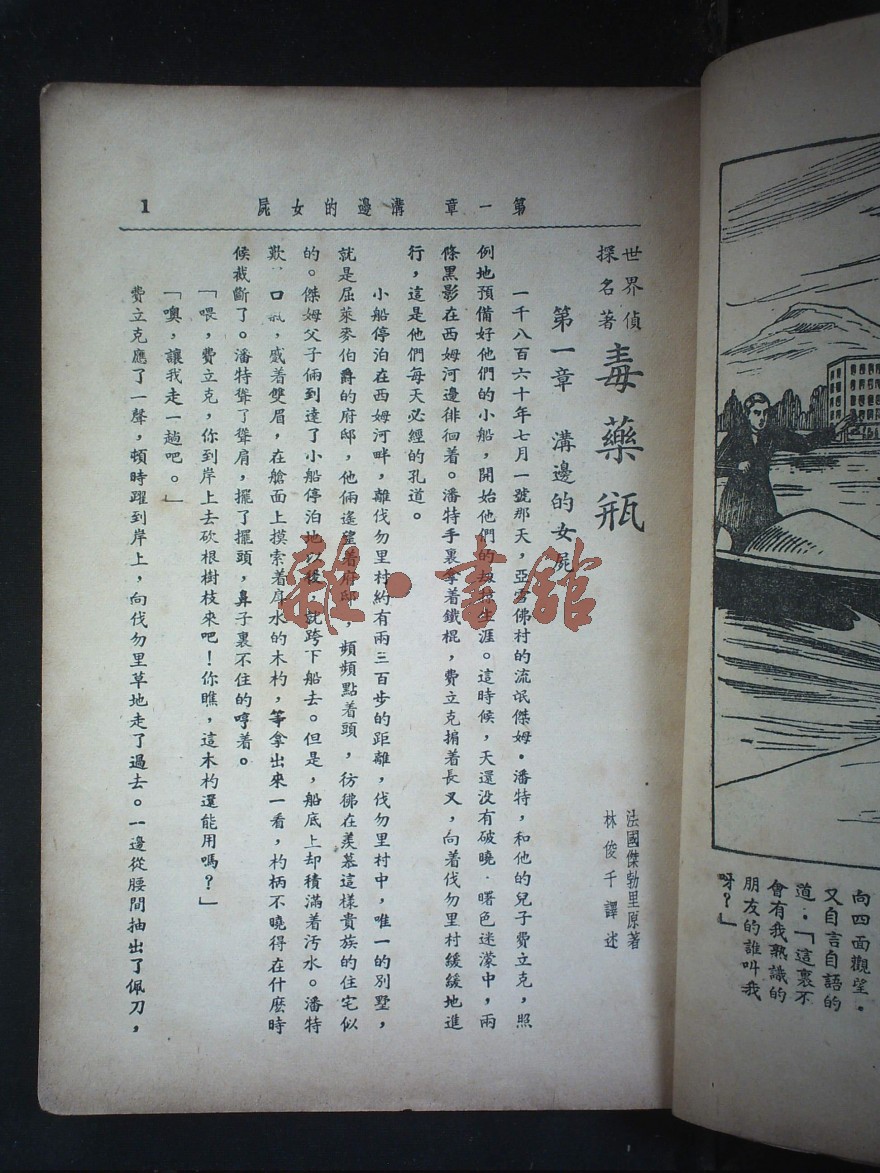 第一章 溝邊的女屍
1
世界偵
探名著
毒藥瓶
法國傑勃里原著
林俊千譯述
第一章 溝邊的女屍
一千八百六十年七月一號那天,亞雪佛村的流氓傑姆·潘特,和他的兒子費立克,照
例地預備好他們的小船,開始他們的生涯。這時候,天還没有破曉,曙色迷濛中,兩
條黑影在西姆河邊徘徊着。潘特手裏拿着鐵棍,費立克掮着長叉,向着伐勿里村緩緩地進
行,這是他們每天必經的孔道。
小船停泊在西姆河畔,離伐勿里村約有兩三百步的距離,伐勿里村中,唯一的別墅,
就是屈萊麥伯爵的府邸,他倆遙望着府邸,頻頻點着頭,彷彿在羨慕這樣貴族的住宅似
的。傑姆父子倆到達了小船停泊地以後,就跨下船去。但是,船底上却積滿着汚水。潘特
歎口氣,蹙着雙眉,在艙面上摸索着戽水的木杓,等拿出來一看,杓柄不曉得在什麽時
候截斷了。潘特聳了聳肩,擺了擺頭,鼻子裏不住的哼着。
「喂,費立克,你到岸上去砍根樹枝來吧!你瞧,這木杓還能用嗎?」
「噢,讓我走一趟吧。」
費立克應了一聲,頓時躍到岸上,向伐勿里草地走了過去。一邊從腰間抽出了佩刀,
向四面觀望。
又自言自語的
道:「這裏不
會有我熟識的
朋友的誰叫我
呀?」
雜·書館